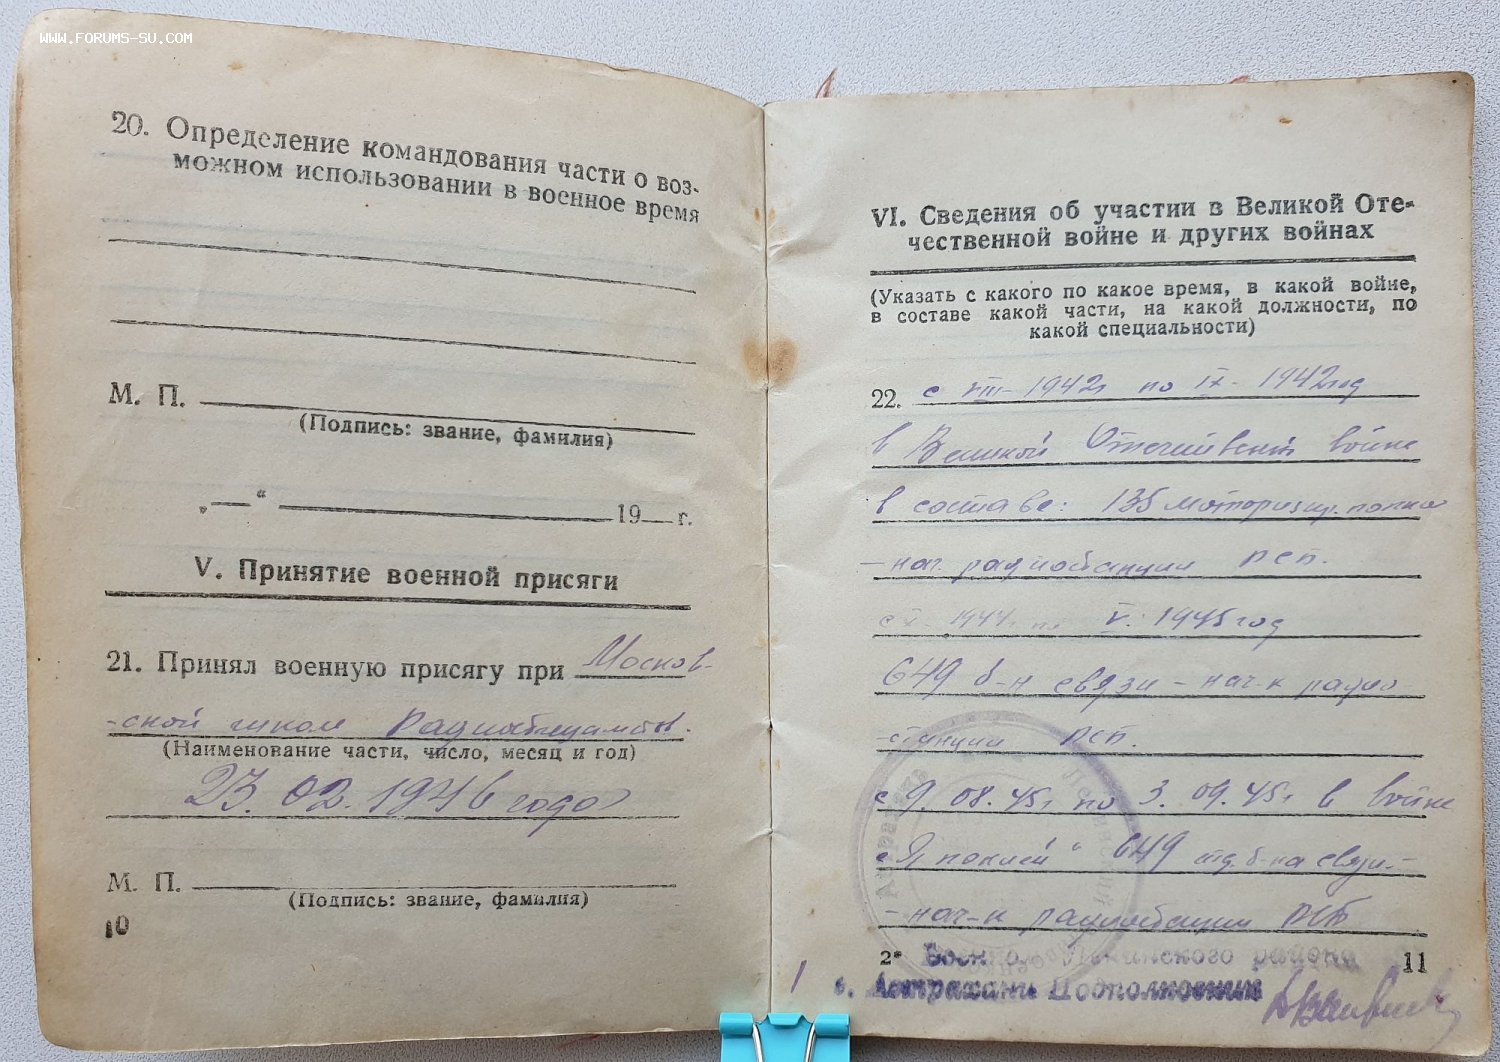 WWW.FORUMS-SU.COM
20. Определение командования части о воз-
можном использовании в военное время
М. П.
(Подпись: звание, фамилия)
„ “ 19 г.
V. Принятие военной присяги
21. Принял военную присягу при Москов-
-ской школе
(Наименование части, число, месяц и год)
23. 02. 1946 года
М. П.
(Подпись: звание, фамилия)
10
VI. Сведения об участии в Великой Оте-
чественной войне и других войнах
(Указать с какого по какое время, в какой войне,
в составе какой части, на какой должности, по
какой специальности)
22. с VIII-1942г по IX-1942год
в Великой Отечествен войне
в составе: 135 моторизир. полка
-нач. радиостанции рсб.
1944г по V. 1945год
649 б-н связи - нач-к радио
-станции рсб.
с 9.08.45г по 3.09.45г в войне
с Японией 649 отд. б-на связи-
-нач-к радиостанции РСБ
2* района 11
г. Астрахани Подполковник